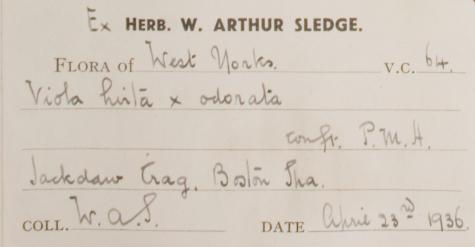 Ex HERB. W. ARTHUR SLEDGE.
FLORA of West Yorks. V.C. 64.
Viola hirta x odorata
conf. P.M.H.
Jackdaw Crag, Boston Spa.
COLL. W.A.S. DATE April 23rd 1936